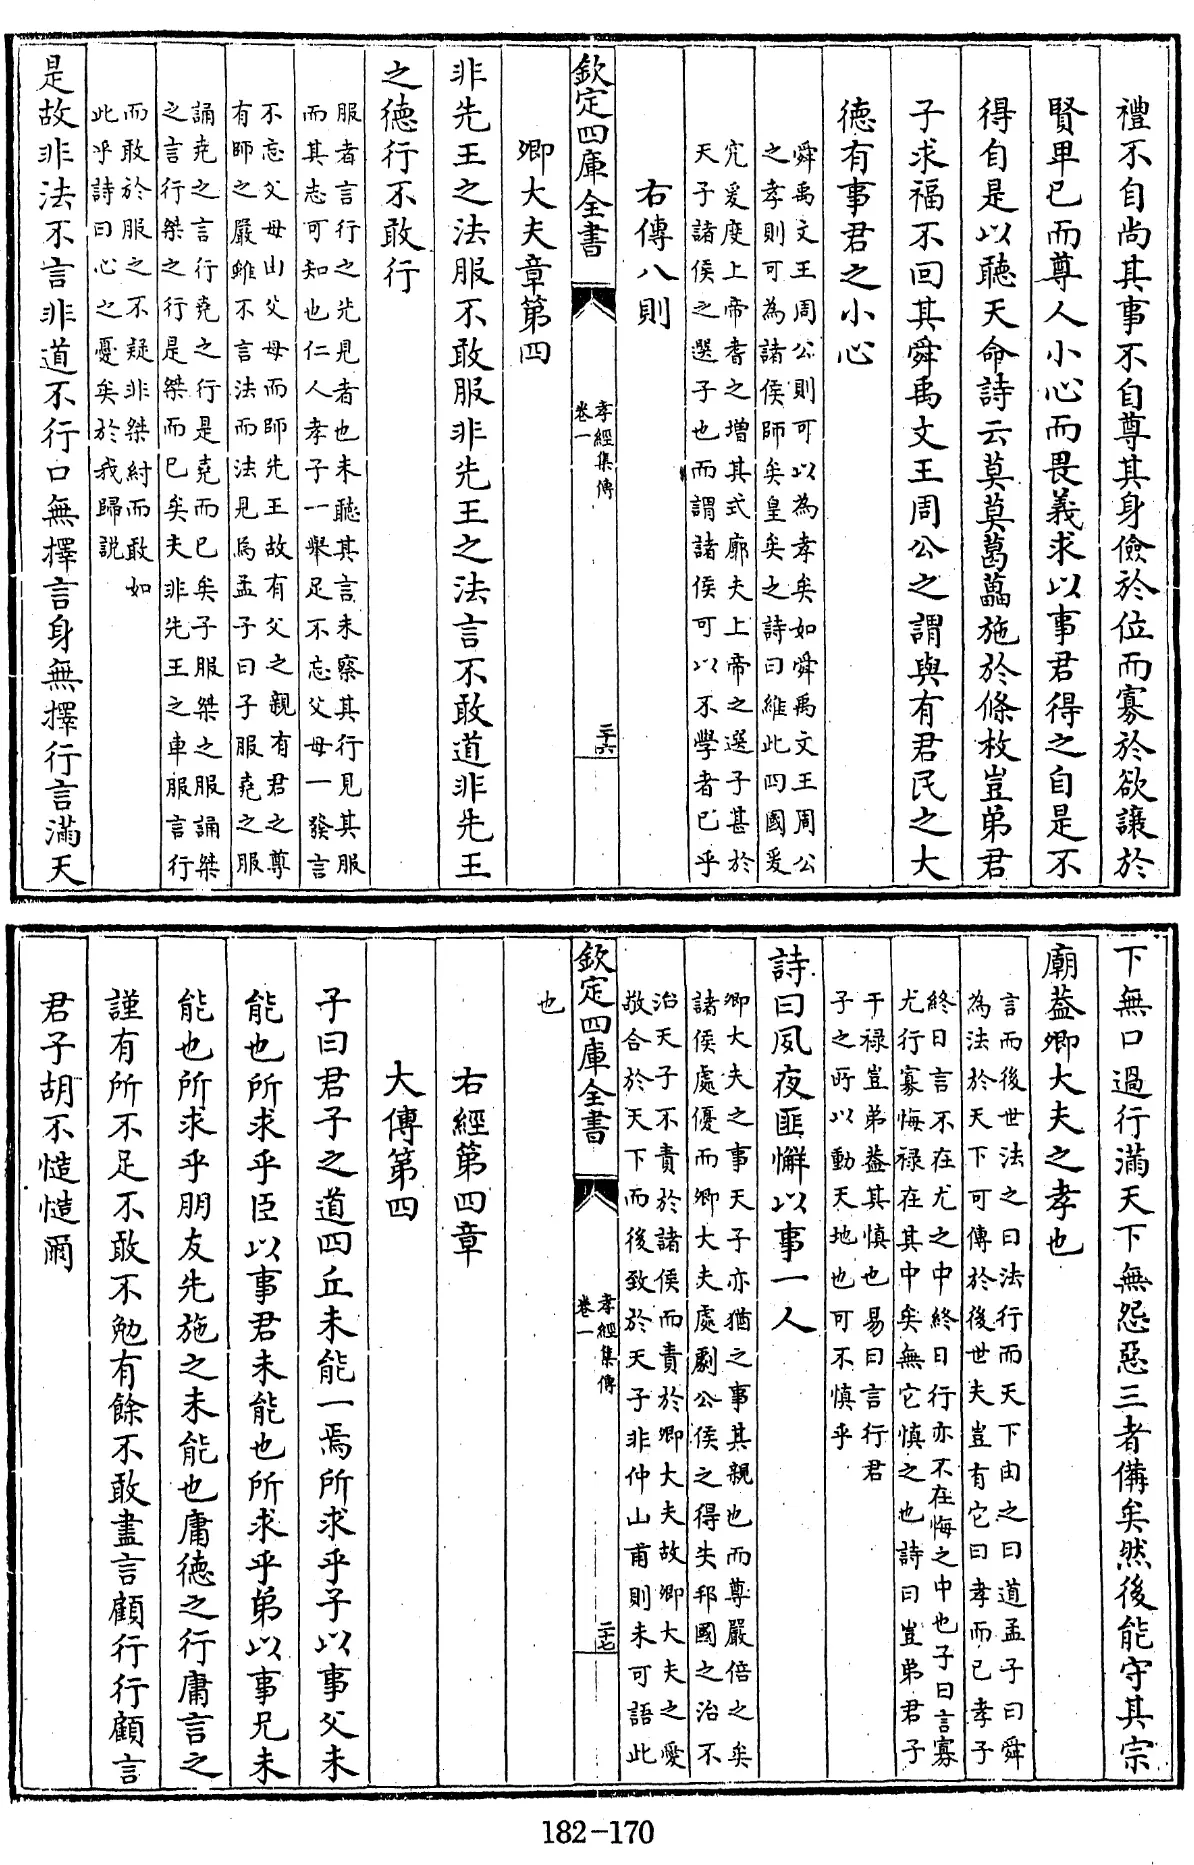 禮不自尚其事不自尊其身儉於位而寡於欲讓於
賢卑已而尊人小心而畏義求以事君得之自是不
得自是以聽天命詩云莫莫葛藟施於條枚豈弟君
子求福不回其舜禹文王周公之謂與有君民之大
德有事君之小心
舜禹文王周公則可以為孝矣如舜禹文王周公
之孝則可為諸侯師矣皇矣之詩曰維此四國爰
究爰度上帝耆之增其式廓夫上帝之選子甚於
天子諸侯之選子也而謂諸侯可以不學者已乎
右傳八則
欽定四庫全書
孝經集傳
卷一
三十六
卿大夫章第四
非先王之法服不敢服非先王之法言不敢道非先王
之德行不敢行
服者言行之先見者也未聽其言未察其行見其服
而其志可知也仁人孝子一舉足不忘父母一發言
不忘父母由父母而師先王故有父之親有君之尊
有師之嚴雖不言法而法見焉孟子曰子服堯之服
誦堯之言行堯之行是堯而已矣子服桀之服誦桀
之言行桀之行是桀而已矣夫非先王之車服言行
而敢於服之不疑非桀紂而敢如
此乎詩曰心之憂矣於我歸説
是故非法不言非道不行口無擇言身無擇行言滿天
下無口過行滿天下無怨惡三者備矣然後能守其宗
廟蓋卿大夫之孝也
言而後世法之曰法行而天下由之曰道孟子曰舜
為法於天下可傳於後世夫豈有它曰孝而已孝子
終日言不在尤之中終日行亦不在悔之中也子曰言寡
尤行寡悔祿在其中矣無它慎之也詩曰豈弟君子
干祿豈弟蓋其慎也易曰言行君
子之所以動天地也可不慎乎
詩曰夙夜匪懈以事一人
卿大夫之事天子亦猶之事其親也而尊嚴倍之矣
諸侯處優而卿大夫處劇公侯之得失邦國之治不
治天子不責於諸侯而責於卿大夫故卿大夫之愛
敬合於天下而後致於天子非仲山甫則未可語此
也
欽定四庫全書
孝經集傳
卷一
三十七
右經第四章
大傳第四
子曰君子之道四丘未能一焉所求乎子以事父未
能也所求乎臣以事君未能也所求乎弟以事兄未
能也所求乎朋友先施之未能也庸德之行庸言之
謹有所不足不敢不勉有餘不敢盡言顧行行顧言
君子胡不慥慥爾
182-170